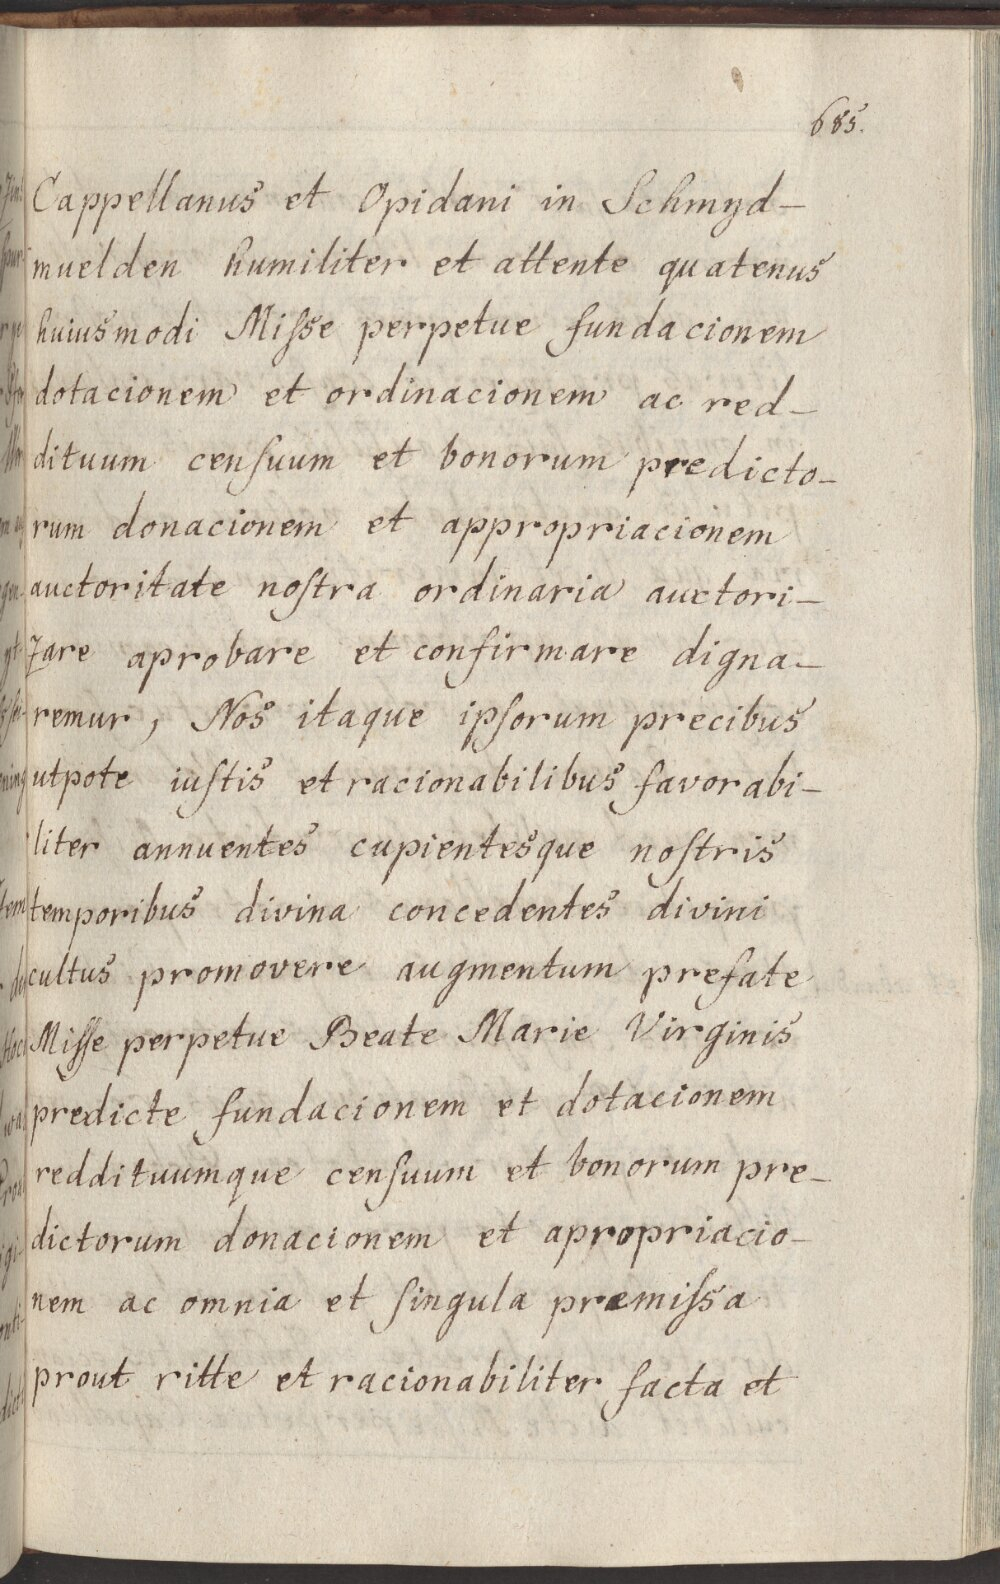 685.
Cappellanus et Opidani in Schmyd-
muelden humiliter et attente quatenus
huiusmodi Misse perpetue fundacionem
dotacionem et ordinacionem ac red-
dituum censuum et bonorum predicto-
rum donacionem et appropriacionem
auctoritate nostra ordinaria auctori-
zare aprobare et confirmare digna-
remur, Nos itaque ipsorum precibus
utpote iustis et racionabilibus favorabi-
liter annuentes cupientesque nostris
temporibus divina concedentes divini
cultus promovere augmentum prefate
Misse perpetue Beate Marie Virginis
predicte fundacionem et dotacionem
reddituumque censuum et bonorum pre-
dictorum donacionem et apropriacio-
nem ac omnia et singula præmissa
prout ritte et racionabiliter facta et